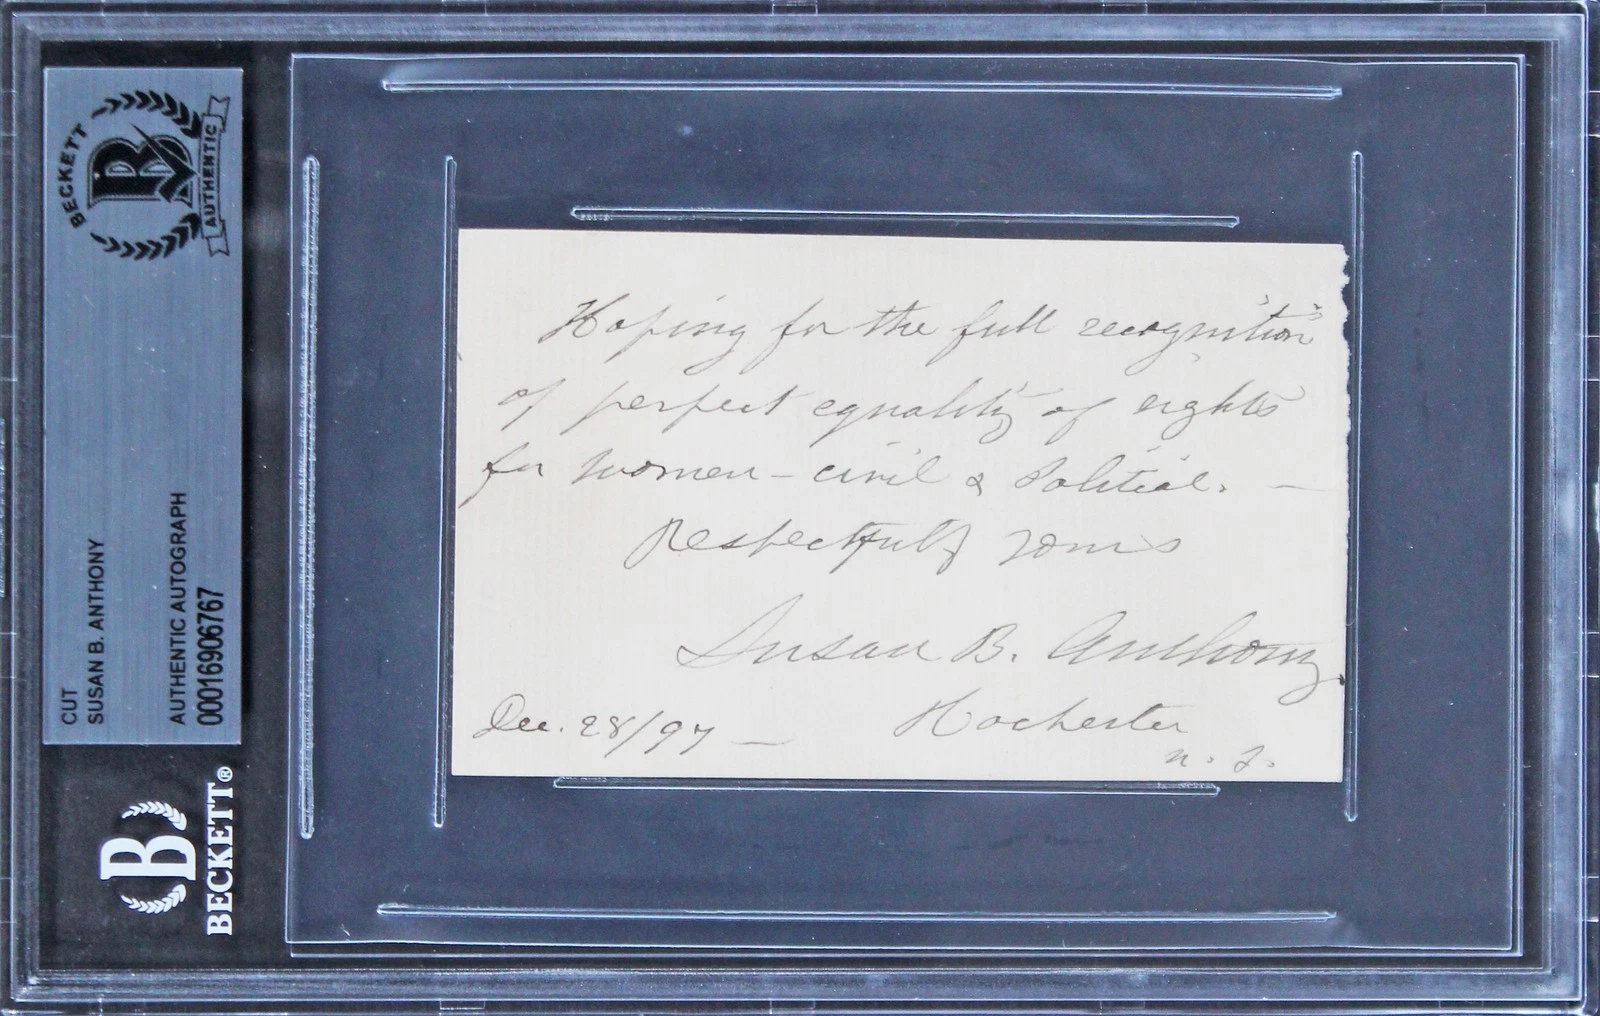 BECKETT
B
AUTHENTIC
CUT
SUSAN B. ANTHONY
AUTHENTIC AUTOGRAPH
0001690676​7
B
BECKETT®
Hoping for the full recognition
of perfect equality of rights
for women - civil & Political. —
Respectfully yours
Susan B. Anthony
Dec. 28/97 — Rochester
N. Y.